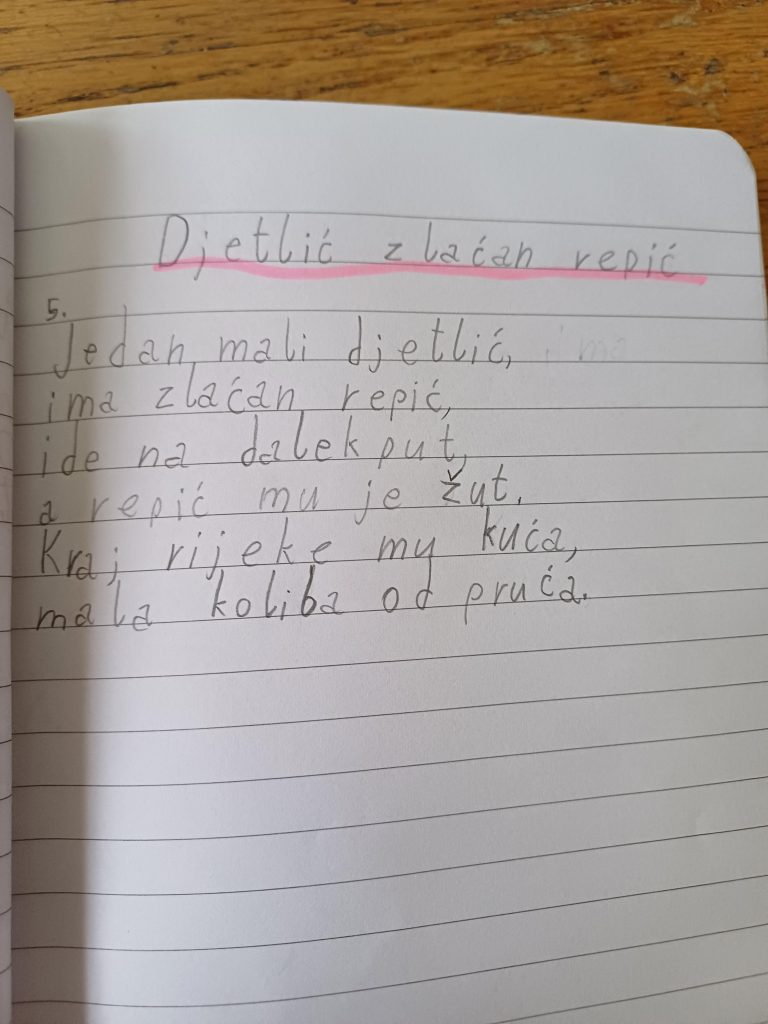 Djetlić zlaćan repić
5.
Jedan mali djetlić,
ima zlaćan repić,
ide na dalek put,
a repić mu je žut.
Kraj rijeke mu kuća,
mala koliba od pruća.